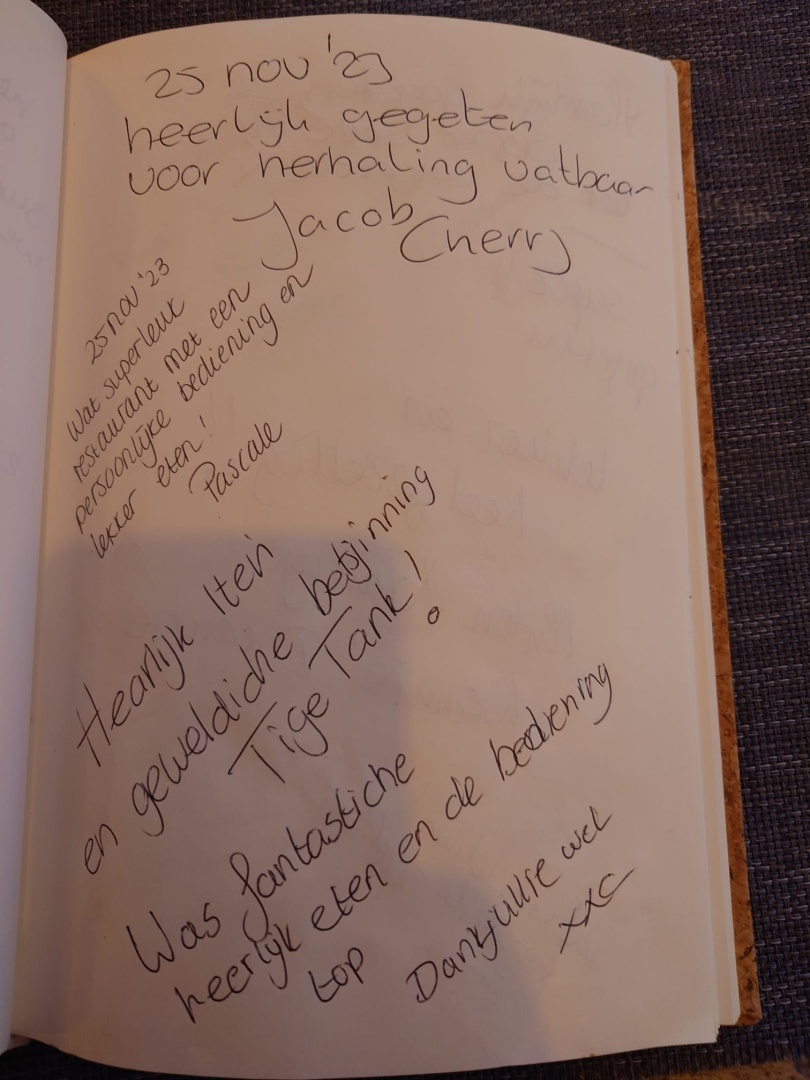 25 nov '23
heerlijk gegeten
voor herhaling vatbaar
Jacob
Cherry
25 nov '23
Wat superleuk
restaurant met een
persoonlijke bediening en
lekker eten!
Pascale
Hearlijk Iten
en geweldiche
Tige Tank!
Was fantastiche
heerlijk eten en de bediening
top
Dankjullie wel
xxc